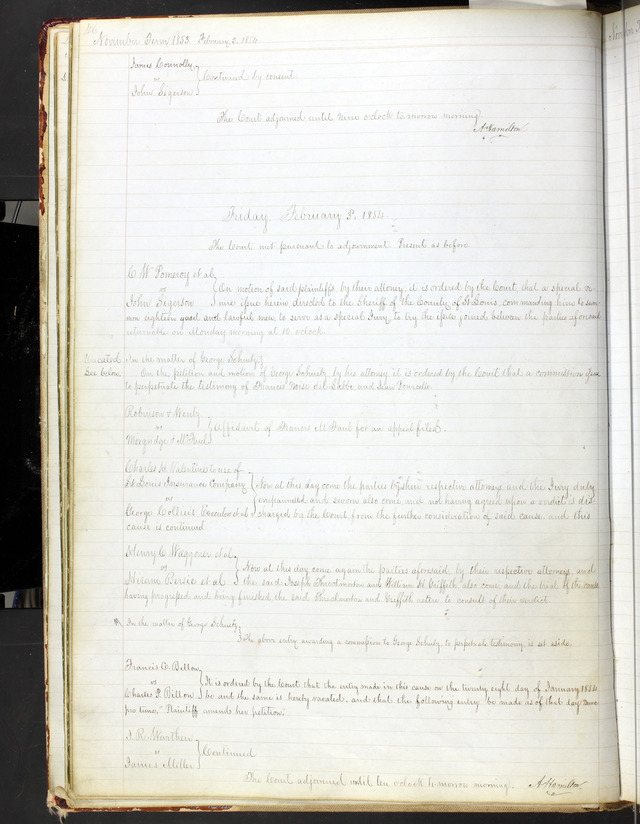 November Term 1853 February 2, 1854
James Connolly
vs } Continued by consent
John Segerson
The Court adjourned until nine o'clock tomorrow morning
A Hamilton
Friday February 3. 1854.
The Court met pursuant to adjournment. Present as before
C W Pomeroy et al
vs } On motion of said plaintiffs, by their attorney, it is ordered by the Court, that a special
John Segerson } issue herein, directed to the Sheriff of the County of St Louis, commanding him to sum-
mon eighteen good and lawful men to serve as a special Jury, to try the issue joined between the parties aforesaid
returnable on Monday morning at 10 o'clock
Vacated In the matter of George Schultz
See below. On the petition and motion of George Schultz by his attorney it is ordered by the Court that a commission issue
to perpetuate the testimony of Francis and Jean
Robinson &
vs } Affidavit of Francis McFaul for an appeal filed.
& McFaul
Charles H Valentine to use of
St Louis Insurance Company } Now at this day come the parties by their respective attorneys and the Jury duly
vs } empannelled and sworn also come and not having agreed upon a verdict is dis-
George Collier's Executors et al } charged by the Court from the further consideration of said cause. and this
cause is continued
Henry C Waggoner et al
vs } Now at this day come again the parties aforesaid, by their respective attorneys, and
Hiram Persic et al } the said Joseph Throckmorton and William H Griffith also come, and the trial of the cause
having progressed and being finished the said Throckmorton and Griffith retire to consult of their verdict
In the matter of George Schultz
The above entry awarding a commission to George Schultz, to perpetuate testimony, is set aside.
Francis A. Billon
vs } It is ordered by the Court that the entry made in this cause on the twenty eight day of January 1854
Charles F. Billon } be and the same is hereby vacated, and that the following entry be made as of that day "nunc
pro tunc." Plaintiff amends her petition.
J. R. Warthen
vs } Continued
James Miller
The Court adjourned until ten o'clock tomorrow morning. A Hamilton